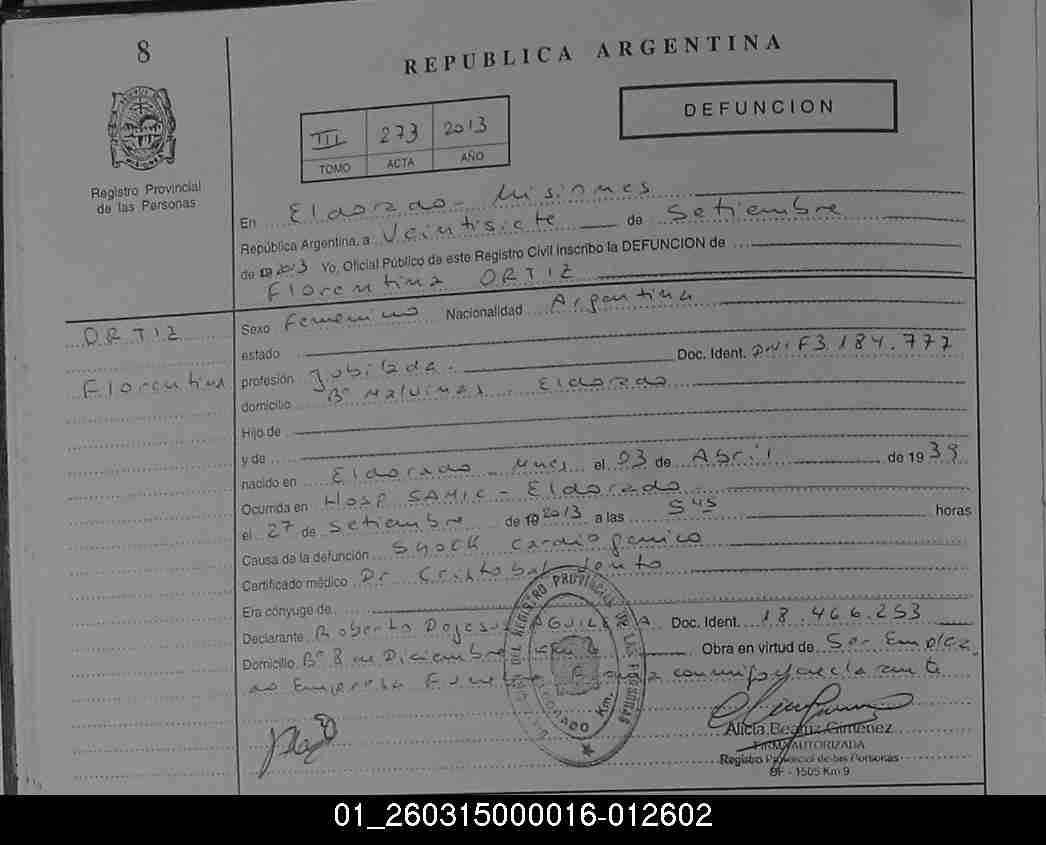 8
REPUBLICA ARGENTINA
DEFUNCION
III 273 2013
TOMO ACTA AÑO
Registro Provincial
de las Personas
En Eldorado - Misiones
República Argentina, a Veintisiete de Setiembre
de 19 2013 Yo, Oficial Público de este Registro Civil inscribo la DEFUNCION de
Florentina ORTIZ
ORTIZ
Florentina
Sexo Femenino Nacionalidad Argentina
estado
profesión Jubilada. Doc. Ident. DNI F3.184.777
domicilio Bº Malvinas - Eldorado
Hijo de
y de
nacido en Eldorado - Mnes el 03 de Abril de 1939
Ocurrida en Hosp SAMIC - Eldorado -
el 27 de Setiembre de 19 2013 a las 5 45 horas
Causa de la defunción Shock cardiogenico
Certificado médico Dr Cristobal
Era cónyuge de
Declarante Roberto Dejesus AGUILERA Doc. Ident. 18.466.253
Domicilio Bº 8 de Diciembre Obra en virtud de Ser Emplea
do Empresa firma conmigo
REGISTRO PROVINCIAL DE LAS PERSONAS
Alicia Beatriz Gimenez
FIRMA AUTORIZADA
Registro Provincial de las Personas
OF - 1505 Km 9
01_260315000016-012602